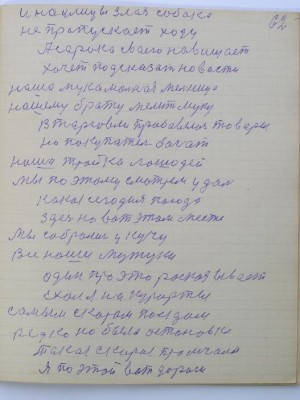 62
и на улицы злая собака
не пропускает ходу
А сорока своего навищает
хочет подсказат новости
наша мукамолная мелница
нашему брату мелют муку
в таргомли прабавили товары
но покупател богат
наша тройка лошадей
мы по этому смотрем удал
какая сегодня погода
здесь но вот этом месте
мы собрали у кучу
Все наши мужуки
один про это рассказывает
ехали на курорты
самым скорам поездом
редко но была остоновка
такая скорая промчала
Я по этой вот дороги